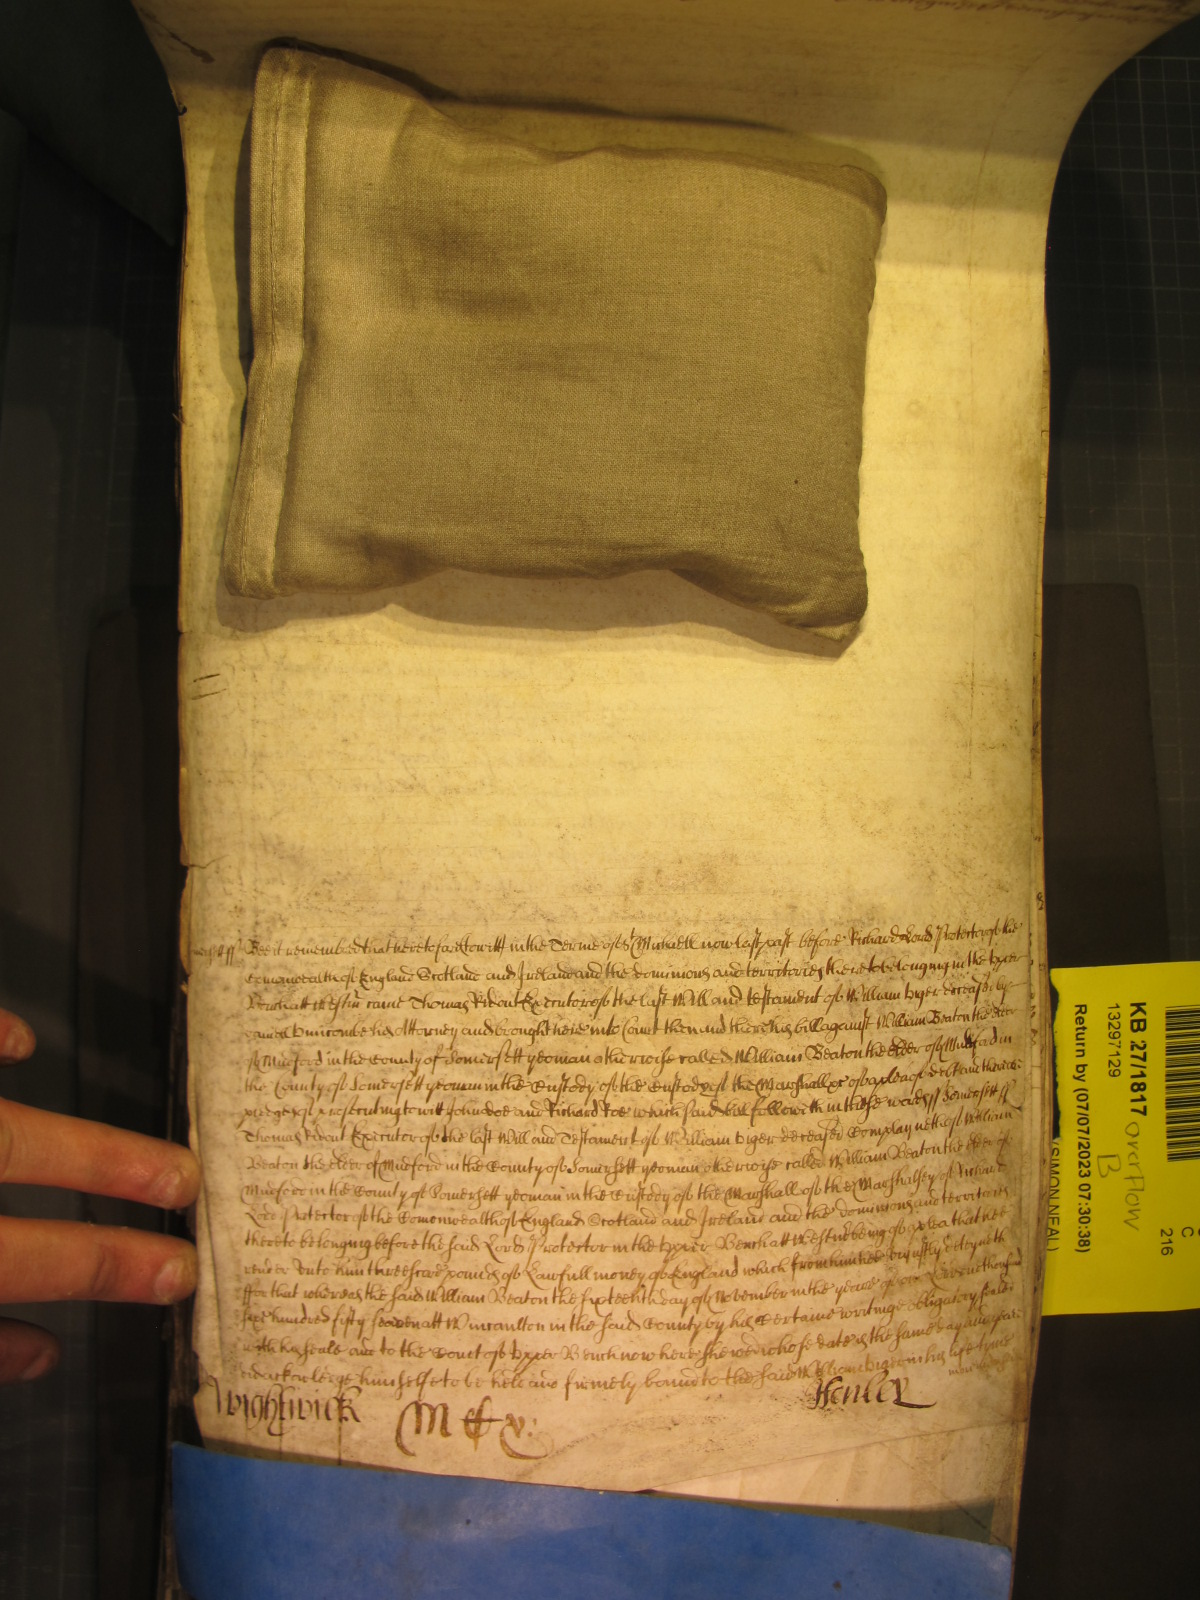 Bee it remembred that heretofore towitt in the Terme of St Michaell now last past before Richard Lord Protector of the
Comonwealth of England Scotland and Ireland and the dominions and territories thereto belonging in the Upper
Bench att Westmr came Thomas Ridout Executor of the last Will and testament of William Biger deceased by
Puncombe his Attorney and brought here into Court then and there his bill against William Beaton the elder
of Mudford in the County of Somersett yeoman otherwise called William Beaton the elder of Mudford in
the County of Somersett yeoman in the Custody of the Custody of the Marshall &c of a plea of debt and there are
pledges of prosecuting towitt John Doe and Richard Roe which said bill followeth in these words ss Somersett ss
Thomas Ridout Executor of the last Will and Testament of William Biger deceased Complayneth of William
Beaton the elder of Mudford in the County of Somersett yeoman otherwise called William Beaton the elder of
Mudford in the County of Somersett yeoman in the Custody of the Marshall of the Marshalsey of Richard
Lord Protector of the Comonwealth of England Scotland and Ireland and the dominions and territories
thereto belonging before the said Lord Protector in the Upper Bench att Westmr being of a plea that hee
render unto him threescore pounds of Lawfull money of England which from him hee unjustly deteyneth
ffor that whereas the said William Beaton the sixteenth day of November in the yeare of our Lord one thousand
six hundred fifty seaven att Wincanlton in the said County by his Certaine writinge obligatory sealed
with his seale and to the Court of Upper Bench now here shewed whose date is the same day and yeare
did acknowledge himselfe to be held and firmely bound to the said William Biger in his life tyme
Wightwick M xv: Henley
KB 27/1817 overflow
B
13297129
Return by (07/07/2023 07:30:38)
(SIMON NEAL)
C
216